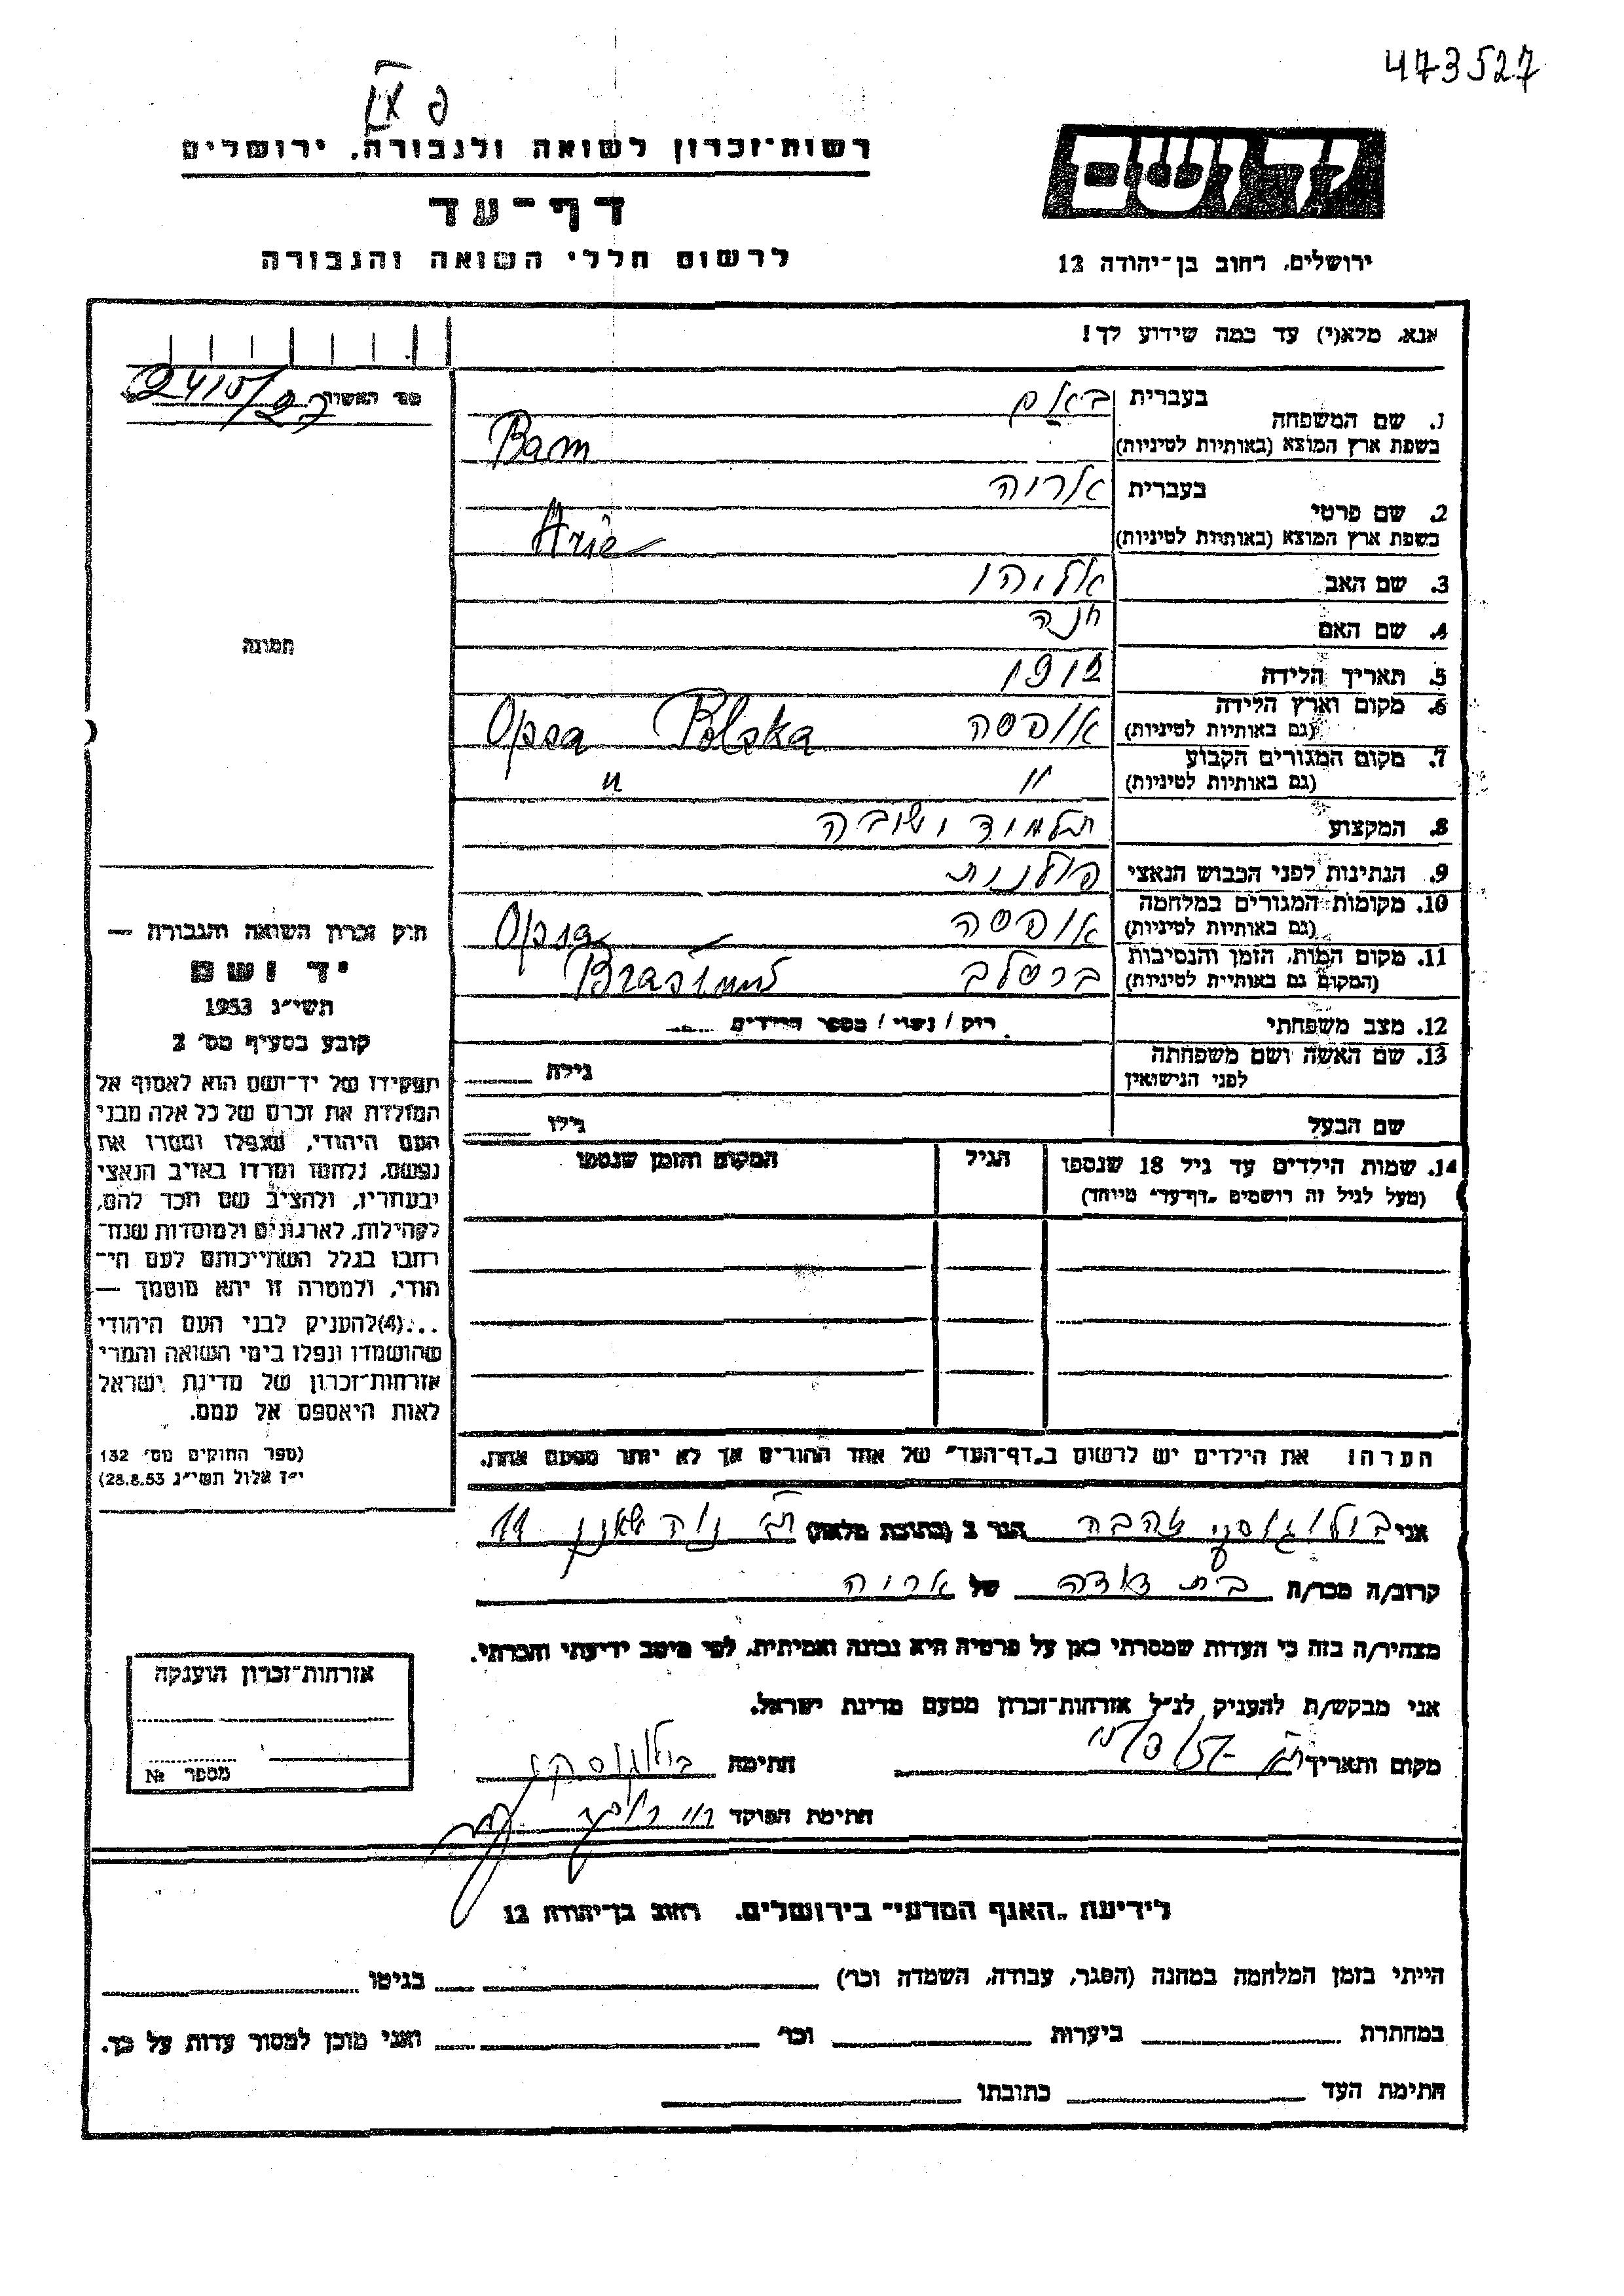 473527
פ
רשות־זכרון לשואה ולגבורה. ירושלים
יד ושם
דף־עד
לרשום חללי השואה והגבורה
ירושלים. רחוב בן־יהודה 12
אנא. מלא(י) עד כמה שידוע לך!
1. שם המשפחה
בעברית באם
בשפת ארץ המוצא (באותיות לטיניות) Bam
2. שם פרטי
בעברית אריה
בשפת ארץ המוצא (באותיות לטיניות) Arie
3. שם האב אליהו
4. שם האם חנה
5. תאריך הלידה 1912
6. מקום וארץ הלידה
(גם באותיות לטיניות) אופסה Opsa Polska
7. מקום המגורים הקבוע
(גם באותיות לטיניות) " "
8. המקצוע תלמיד ישיבה
9. הנתינות לפני הכבוש הנאצי פולנית
10. מקומות המגורים במלחמה
(גם באותיות לטיניות) אופסה Opsa
11. מקום המות. הזמן והנסיבות
(המקום גם באותיות לטיניות) ברסלב
12. מצב משפחתי רוק / נשוי / מספר הילדים
13. שם האשה ושם משפחתה
לפני הנישואין גילה
שם הבעל גילו
14. שמות הילדים עד גיל 18 שנספו
(מעל לגיל זה רושמים „דף־עד" מיוחד)
הגיל
המקום והזמן שנספו
הערה: את הילדים יש לרשום ב„דף־העד" של אחד ההורים אך לא יותר מפעם אחת.
מס' האשור
תמונה
חוק זכרון השואה והגבורה —
יד ושם
תשי"ג 1953
קובע בסעיף מס' 2
תפקידו של יד־ושם הוא לאסוף אל
המולדת את זכרם של כל אלה מבני
העם היהודי, שנפלו ומסרו את
נפשם, נלחמו ומרדו באויב הנאצי
ובעוזריו, ולהציב שם וזכר להם,
לקהילות, לארגונים ולמוסדות שנח־
רבו בגלל השתייכותם לעם הי־
הודי, ולמטרה זו יהא מוסמך —
...(4)להעניק לבני העם היהודי
שהושמדו ונפלו בימי השואה והמרי
אזרחות־זכרון של מדינת ישראל
לאות היאספם אל עמם.
(ספר החוקים מס' 132
י"ז אלול תשי"ג 28.8.53)
אני הגר ב (כתובת מלאה) נוה שאנן 11
קרוב/ה מכר/ה בת דודה של אריה
מצהיר/ה בזה כי העדות שמסרתי כאן על פרטיה היא נכונה ואמיתית. לפי מיטב ידיעתי והכרתי.
אני מבקש/ת להעניק לנ"ל אזרחות־זכרון מטעם מדינת ישראל.
מקום ותאריך חתימה
חתימת הפוקד
אזרחות־זכרון הוענקה
מספר №
לידיעת „האגף המדעי" בירושלים. רחוב בן־יהודה 12
הייתי בזמן המלחמה במחנה (הסגר, עבודה, השמדה וכו') בגיטו
במחתרת ביערות וכו' ואני מוכן למסור עדות על כך.
חתימת העד כתובתו